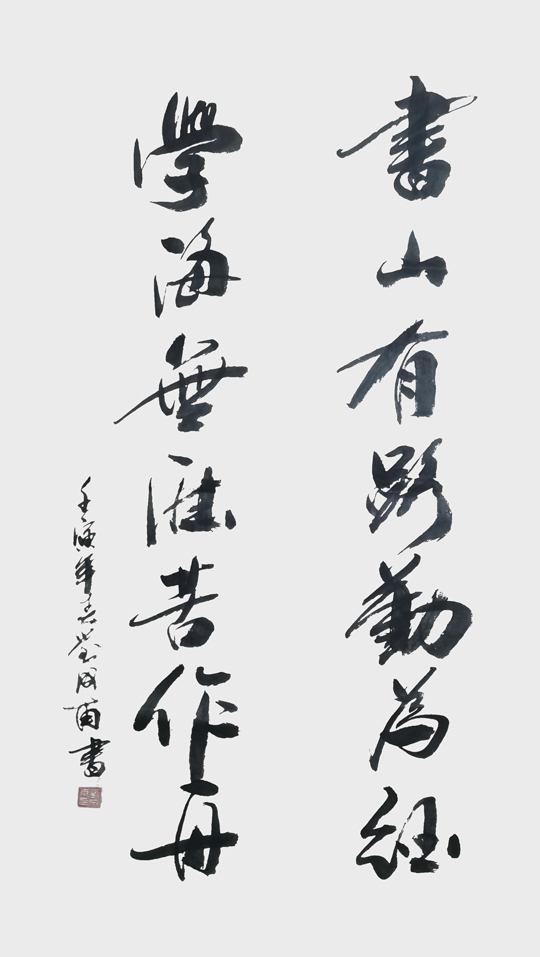 書山有路勤為徑
學海無涯苦作舟
壬寅年成甫書